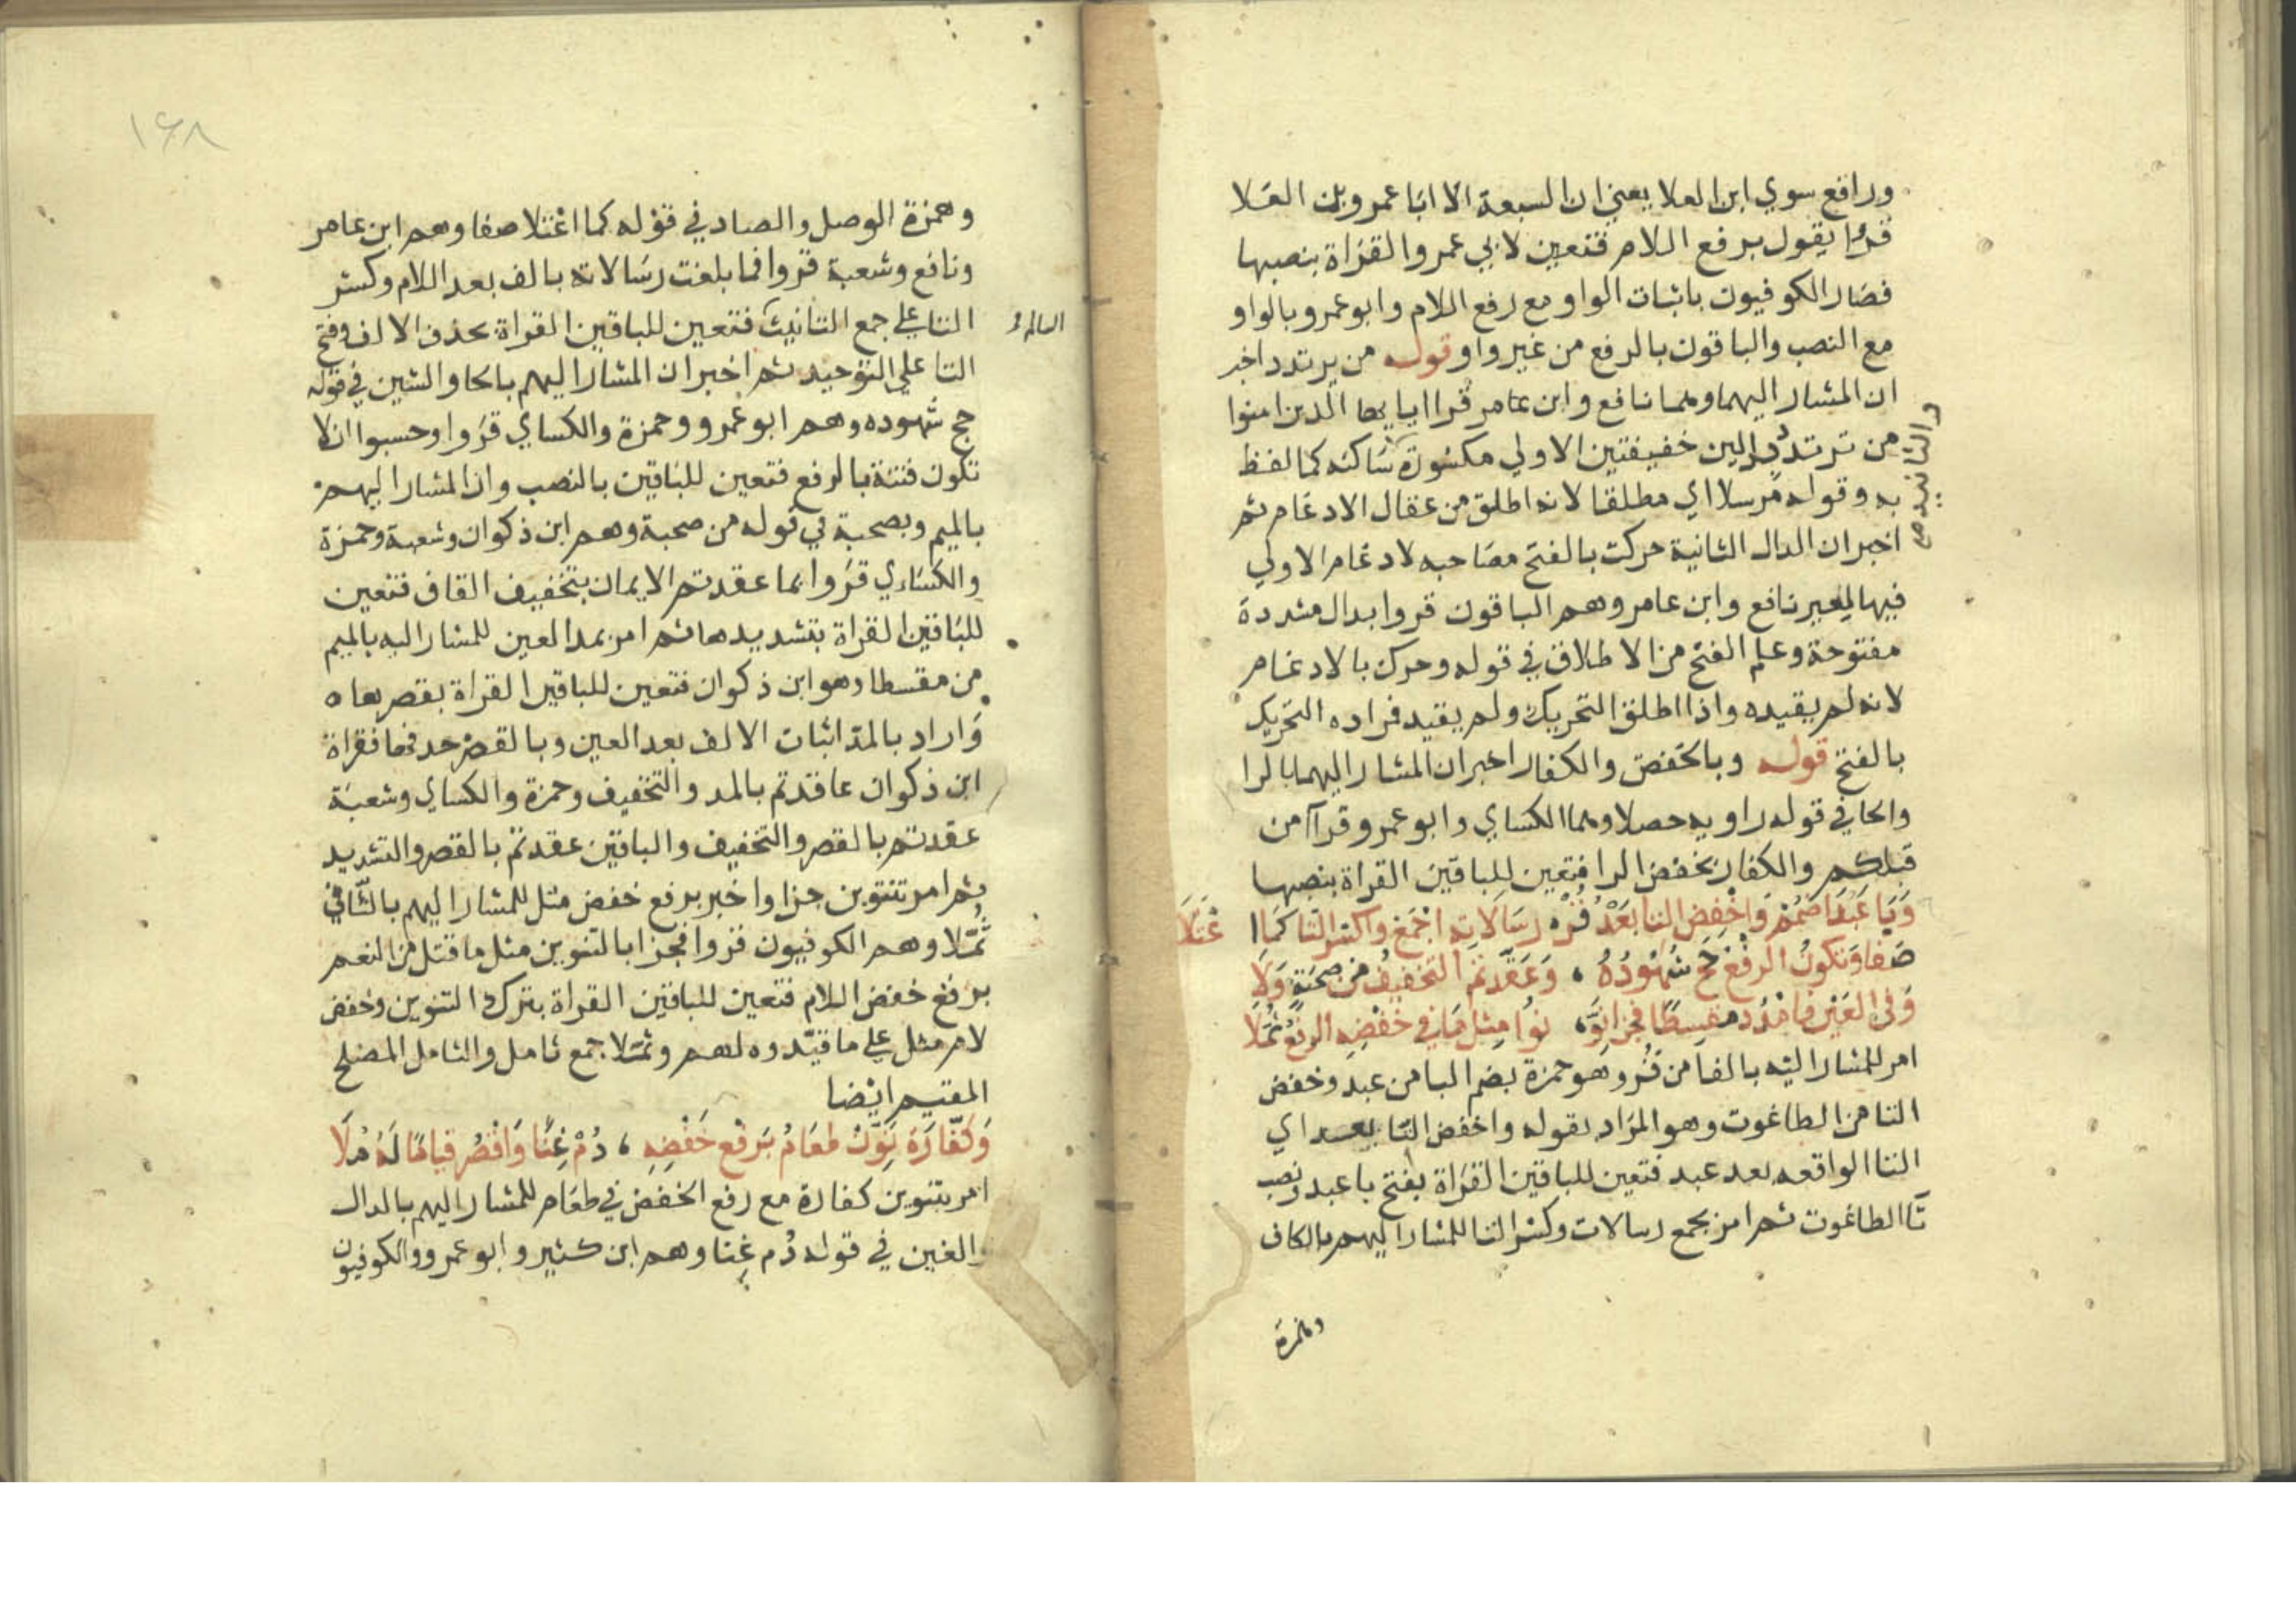 ورافع سوي ابن العلا يعني ان السبعة الا ابا عمرو بن العلا
قرا يقول برفع اللام فتعين لابي عمرو القراة بنصبها
فصار الكوفيون باثبات الواو مع رفع اللام وابو عمرو بالواو
مع النصب والباقون بالرفع من غير واو قوله من يرتدد اخبر
ان المشار اليهما وهما نافع وابن عامر قرا ايايها الذين امنوا
من يرتدد بدالين خفيفتين الاولي مكسورة ساكنه كما لفظ
به وقوله مرسلا اي مطلقا لانه اطلق من عقال الادغام ثم
اخبر ان الدال الثانية حركت بالفتح مصاحبه لادغام الاولي
فيها لغير نافع وابن عامر وهم الباقون قروا بدال مشددة
مفتوحة وعلم الفتح من الاطلاق في قوله وحرك بالادغام
لانه لم يقيده واذا اطلق التحريك ولم يقيد فراده التحريك
بالفتح قوله وبالخفض والكفار اخبر ان المشار اليهما بالرا
والحا في قوله راويه حصلا وهما الكساي وابو عمرو قراآ من
قبلكم والكفار بخفض الرا فتعين للباقين القراة بنصبها
وَبَا عَبَدَ اضْمُمْ وَاخْفِضِ التا بَعْدُ فُزْ رِسَالَاتِهِ اجْمَعْ واكسر التا كَمَا ا عْتَلَا
صَفا وَتكونُ الرفْعُ حَجَّ شُهُودُهُ ، وَعَقَّدتمُ التخفيفُ من صحبَةٍ وَلَا
وَفي العَيْنِ فَامْدُد مقسِطًا فجزا نوِّ، نوُا مِثلُ مَا في خفْضِهِ الرفعُ ثُمَّلَا
امر للمشار اليه بالفا من فز وهو حمزة بضم البا من عبد وخفض
التا من الطاغوت وهو المراد بقوله واخفض التا بعد اي
التا الواقعه بعد عبد فتعين للباقين القراة بفتح با عبد ونصب
تا الطاغوت ثم امر بجمع رسالات وكسر التا للمشار اليهم بالكاف
وهمزة
١٦٨
وهمزة الوصل والصاد في قوله كما اعْتلا صفا وهم ابن عامر
ونافع وشعبة قروا فما بلغت رسالاته بالف بعد اللام وكسر
التا علي جمع التانيث فتعين للباقين القراة بحذف الالف وفتح
السالم
التا علي التوحيد ثم اخبر ان المشار اليهم بالحا والشين في قوله
حج شهوده وهم ابو عمرو وحمزة والكساي قروا وحسبوا ان لا
تكون فتنة بالرفع فتعين للباقين بالنصب وان المشار اليهم
بالميم وبصحبة في قوله من صحبة وهم ابن ذكوان وشعبة وحمزة
والكساءي قروا بما عقدتم الايمان بتخفيف القاف فتعين
للباقين القراة بتشديدها ثم امر بمد العين للمشار اليه بالميم
من مقسطا وهو ابن ذكوان فتعين للباقين القراة بقصرها ه
وَاراد بالمد اثبات الالف بعد العين وبالقصر حذفها فقراة
ابن ذكوان عاقدتم بالمد والتخفيف وحمزة والكساي وشعبة
عقدتم بالقصر والتخفيف والباقين عقدتم بالقصر والتشديد
ثم امر بتنوين جزا واخبر برفع خفض مثل للمشار اليهم بالثا في
ثُمَّلا وهم الكوفيون قروا فجزا بالتنوين مثل ما قتل من النعم
برفع خفض اللام فتعين للباقين القراة بترك التنوين وخفض
لام مثل علي ما قيّدوه لهم وثمّلا جمع ثامل والثامل المصلح
المقيم ايضا
وَكَفَّارَة نَوِّن طعَامُ بَرفعِ خَفْضِهِ ، دُمْ غِنًا وَاقْصُر قيامًا لَهُ مُلَا
امر بتنوين كفارة مع رفع الخفض في طعام للمشار اليهم بالدال
والغين في قوله دُم غِنا وهم ابن كثير وابو عمرو والكوفيون